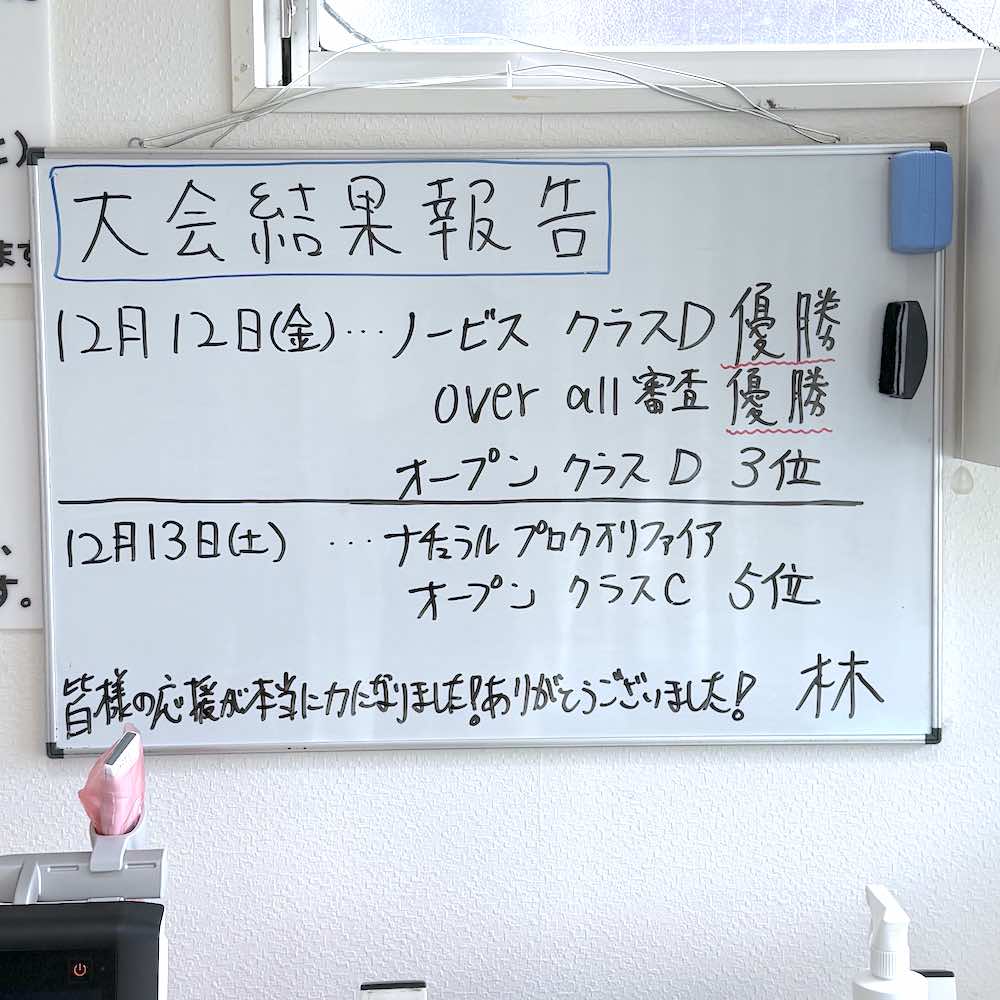 大会結果報告
12月12日(金)…ノービス クラスD 優勝
over all 審査 優勝
オープン クラス D 3位
12月13日(土) …ナチュラル プロクオリファイア
オープン クラス C 5位
皆様の応援が本当に力になりました!ありがとうございました! 林
ます
す。